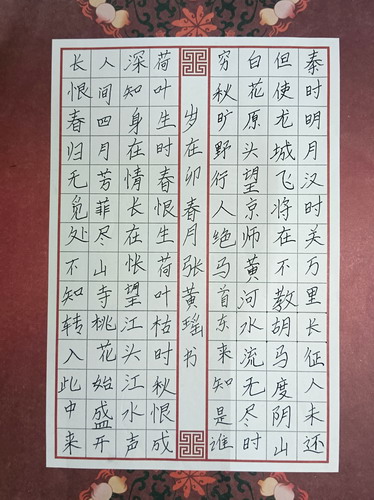 秦时明月汉时关万里长征人未还
但使龙城飞将在不教胡马度阴山
白花原头望京师黄河水流无尽时
穷秋旷野行人绝马首东来知是谁
岁在卯春月张黄瑶书
荷叶生时春恨生荷叶枯时秋恨成
深知身在情长在怅望江头江水声
人间四月芳菲尽山寺桃花始盛开
长恨春归无觅处不知转入此中来